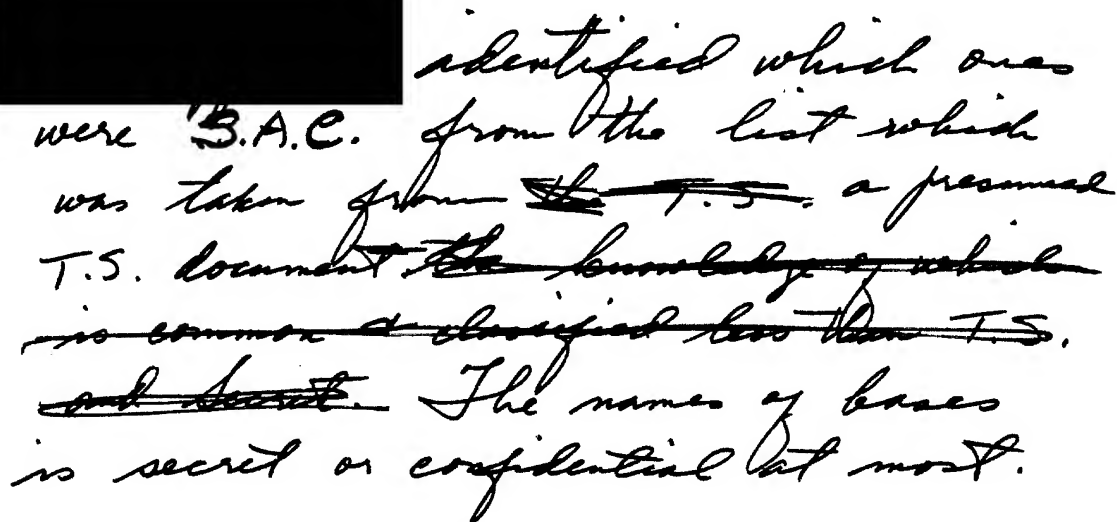 identified which ones
were S.A.C. from the list which
was taken from the T.S. a presumed
T.S. document the knowledge of which
is common & classified less than T.S.
and Secret. The names of bases
is secret or confidential at most.